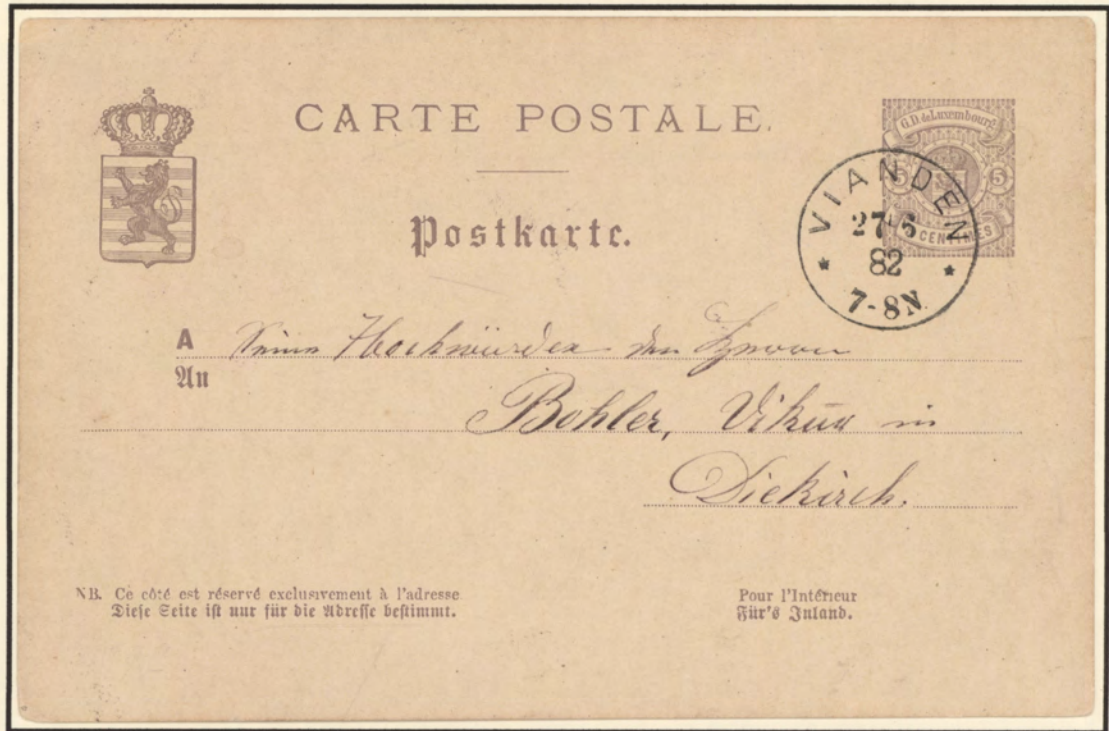 CARTE POSTALE.
Postkarte.
G.D. de Luxembourg
5 5
CENTIMES
VIANDEN
27-6
82
7-8N.
A Seine Hochwürden den Herrn
An
Bohler, Vikar in
Diekirch.
NB. Ce côté est réservé exclusivement à l'adresse
Diese Seite ist nur für die Adresse bestimmt.
Pour l'Intérieur
Für's Inland.